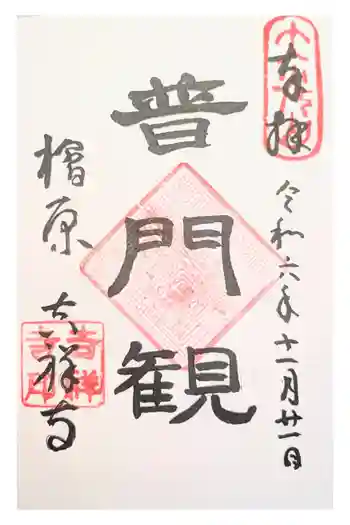 奉拝
令和六年十一月廿一日
普門観
檜原 吉祥寺
吉祥